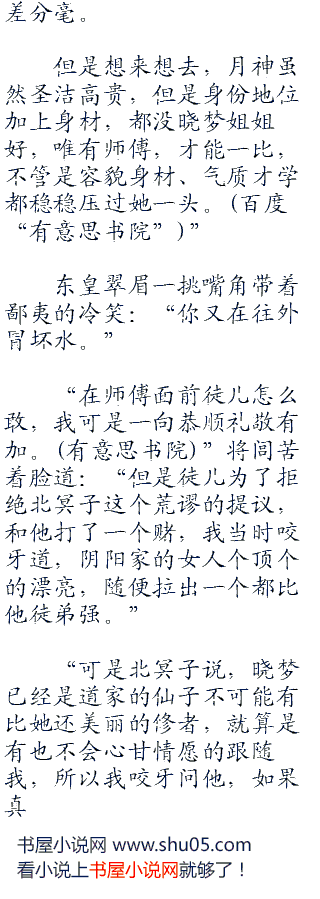 差分毫。
但是想来想去，月神虽
然圣洁高贵，但是身份地位
加上身材，都没晓梦姐姐
好，唯有师傅，才能一比，
不管是容貌身材、气质才学
都稳稳压过她一头。(百度
“有意思书院”)”
东皇翠眉一挑嘴角带着
鄙夷的冷笑：“你又在往外
冒坏水。”
“在师傅面前徒儿怎么
敢，我可是一向恭顺礼敬有
加。(有意思书院)”将闾苦
着脸道：“但是徒儿为了拒
绝北冥子这个荒谬的提议，
和他打了一个赌，我当时咬
牙道，阴阳家的女人个顶个
的漂亮，随便拉出一个都比
他徒弟强。”
“可是北冥子说，晓梦
已经是道家的仙子不可能有
比她还美丽的修者，就算是
有也不会心甘情愿的跟随
我，所以我咬牙问他，如果
真
书屋小说网 www.shu05.com
看小说上书屋小说网就够了！